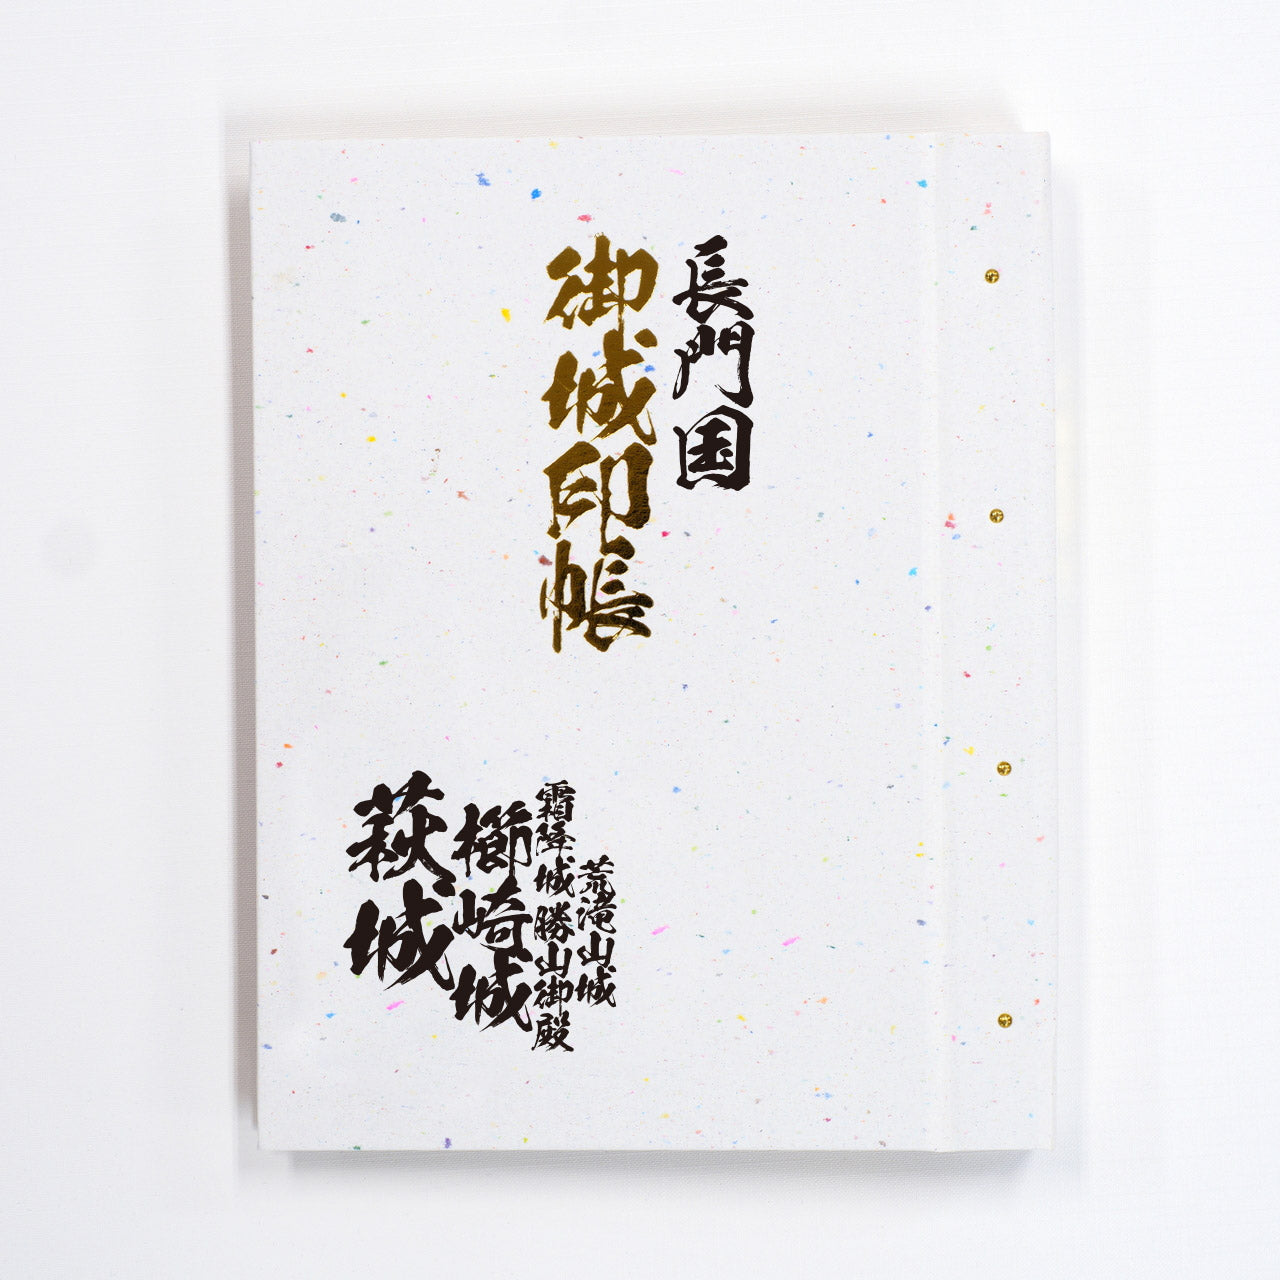 長門国
御城印帳
荒滝山城
霜降城勝山御殿
櫛崎城
萩城